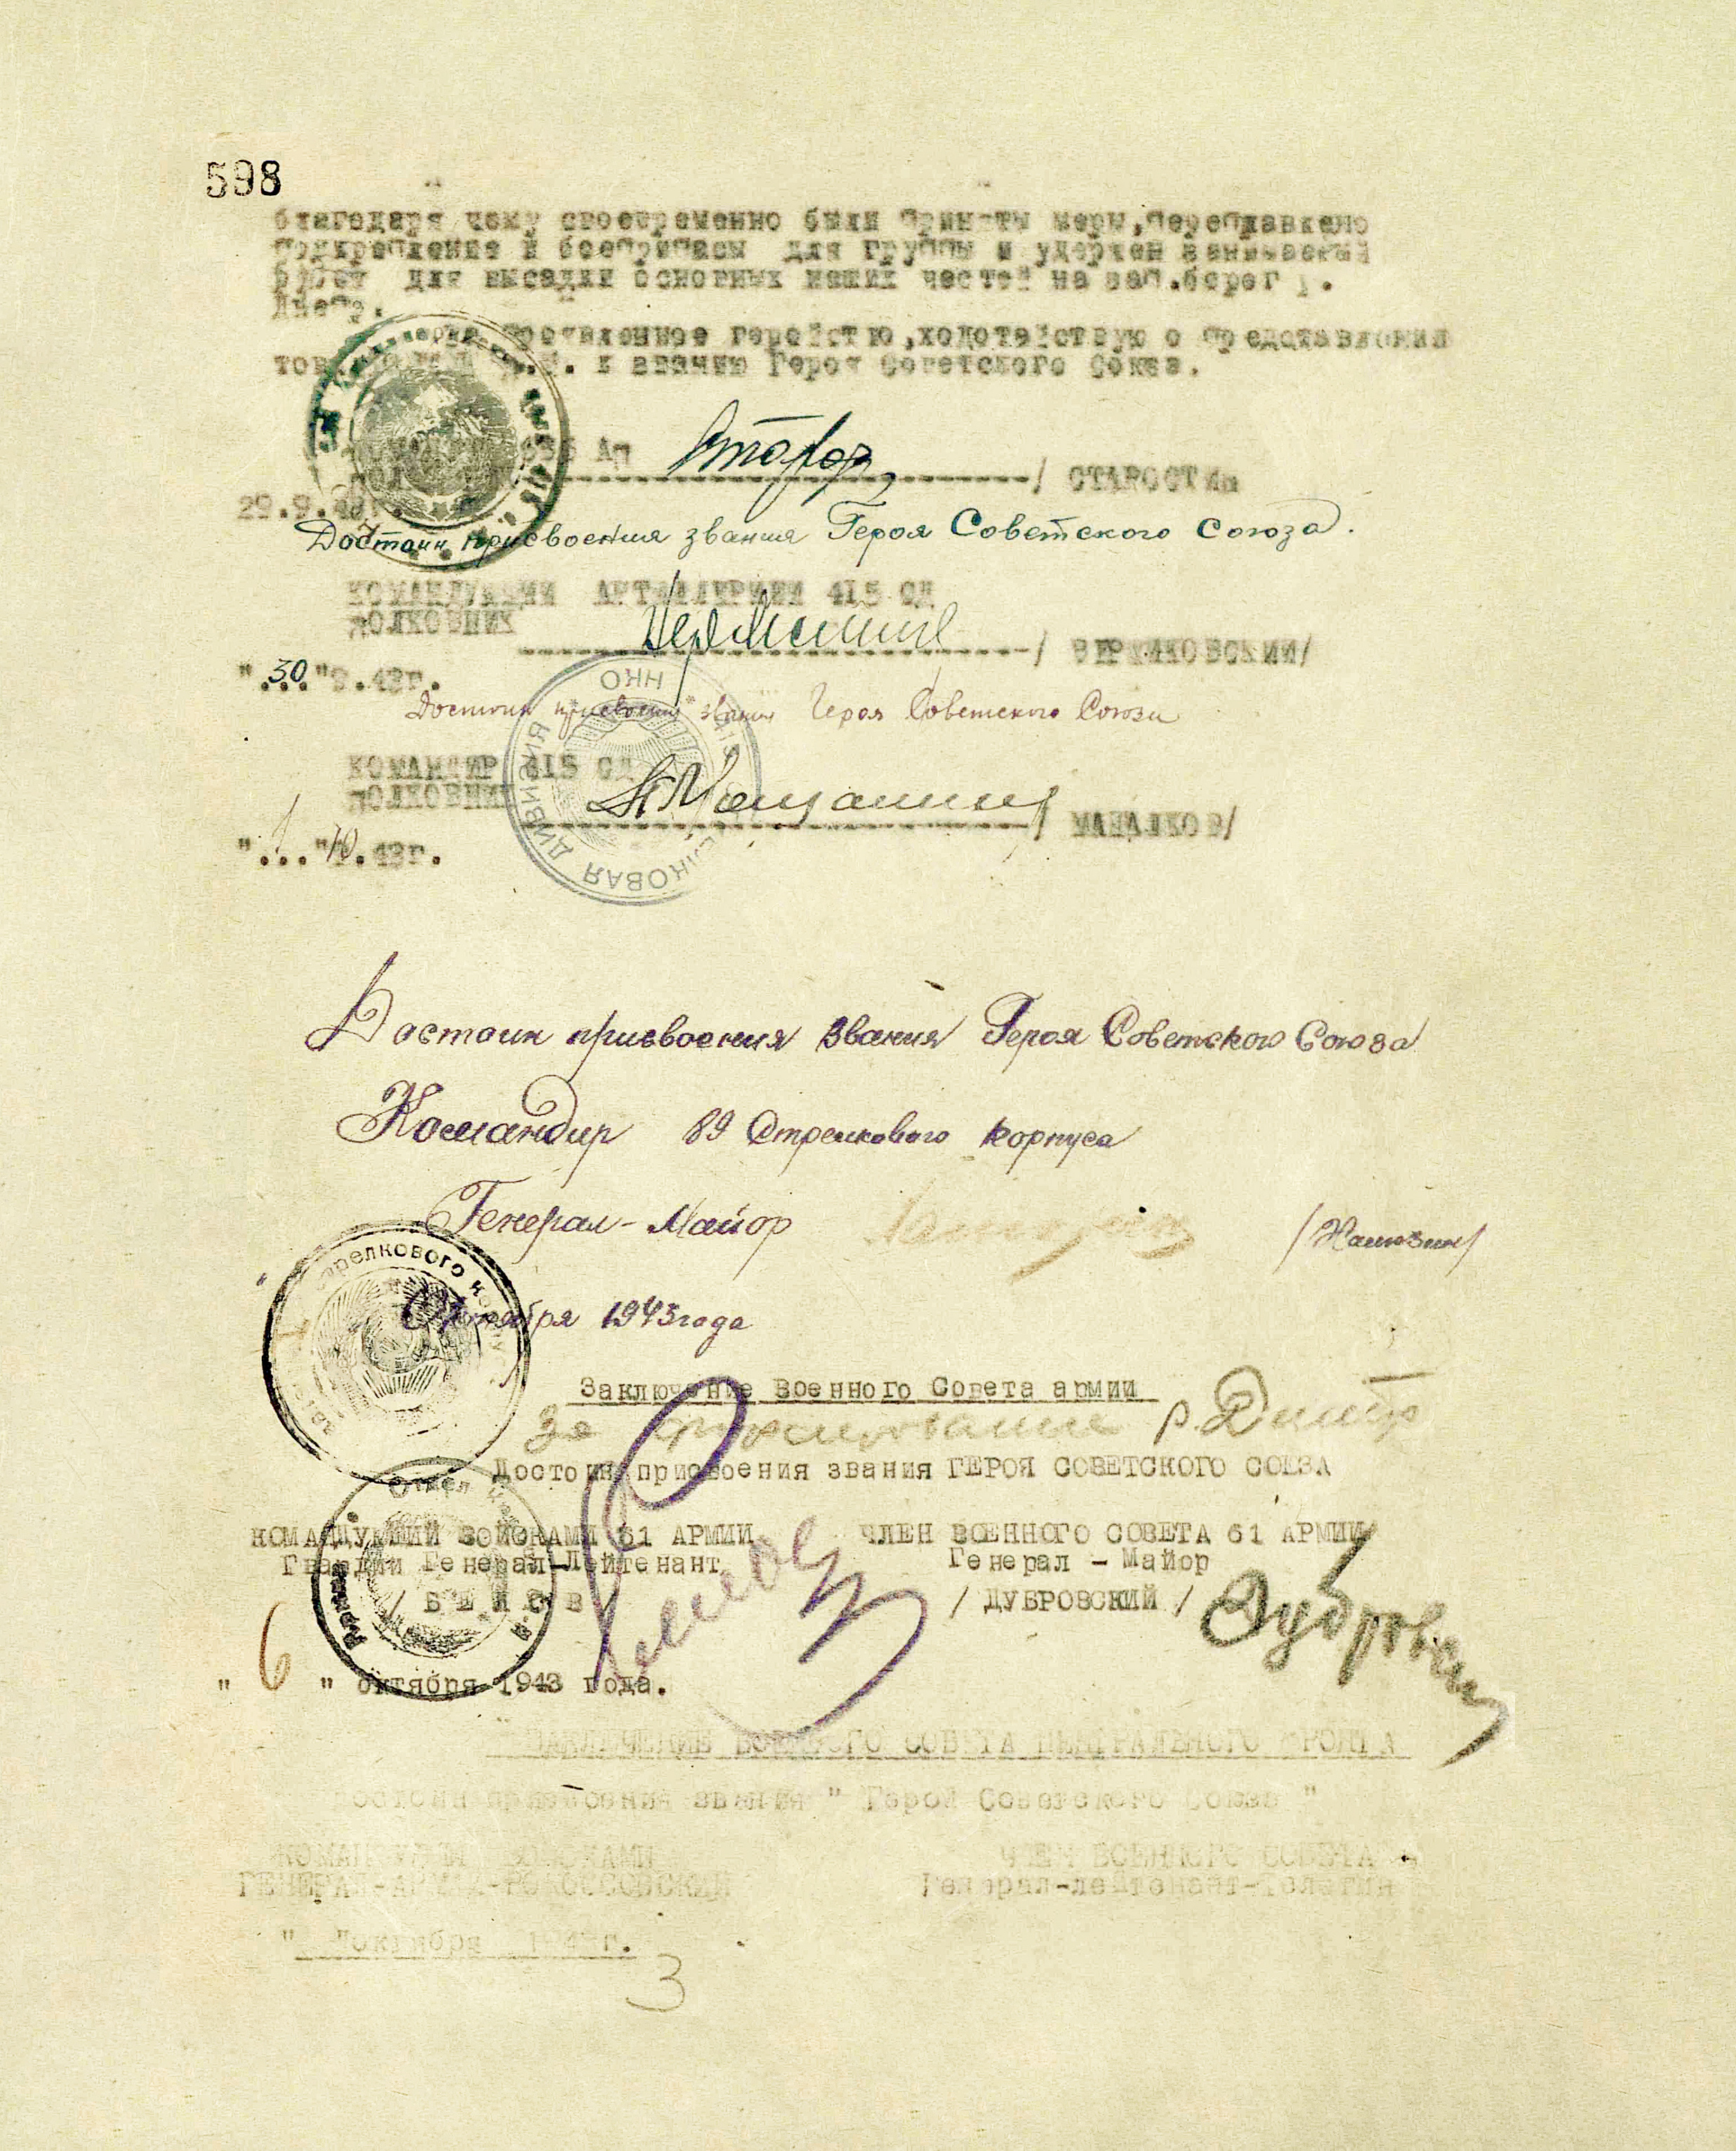 598
благодаря чему своевременно были приняты меры, переправлено
подкрепление и боеприпасы для группы и удержан занимаемый
рубеж для высадки основных наших частей на зап.берег р.
Днепр.
проявленное геройство, ходатайствую о представлении
тов. к званию Героя Советского Союза.
АП
/ СТАРОСТИН
29.9.43г.
Достоин присвоения звания Героя Советского Союза.
КОМАНДУЮЩИЙ АРТИЛЛЕРИЕЙ 415 СД
ПОЛКОВНИК
/ ВЕРЖИКОВСКИЙ/
"30"9.43г.
Достоин присвоения звания Героя Советского Союза
КОМАНДИР 415 СД
ПОЛКОВНИК
/ МАЩАЛКОВ/
"1"10.43г.
ННО
СТРЕЛКОВАЯ ДИВИЗИЯ
Достоин присвоения звания Героя Советского Союза
Командир 89 Стрелкового корпуса
Генерал-Майор
Октября 1943 года
Стрелкового
Заключение Военного Совета армии
За форсирование р. Днепр
Достоин присвоения звания ГЕРОЯ СОВЕТСКОГО СОЮЗА
КОМАНДУЮЩИЙ ВОЙСКАМИ 61 АРМИИ ЧЛЕН ВОЕННОГО СОВЕТА 61 АРМИИ
Гвардии Генерал-Лейтенант Генерал - Майор
/ БЕЛОВ / / ДУБРОВСКИЙ /
Отдел
" 6 " октября 1943 года.
ЗАКЛЮЧЕНИЕ ВОЕННОГО СОВЕТА ЦЕНТРАЛЬНОГО ФРОНТА
Достоин присвоения звания " Герой Советского Союза "
КОМАНДУЮЩИЙ ВОЙСКАМИ ЧЛЕН ВОЕННОГО СОВЕТА
ГЕНЕРАЛ-АРМИИ-РОКОССОВСКИЙ Генерал-лейтенант-Телегин
" "октября 1943г.
3